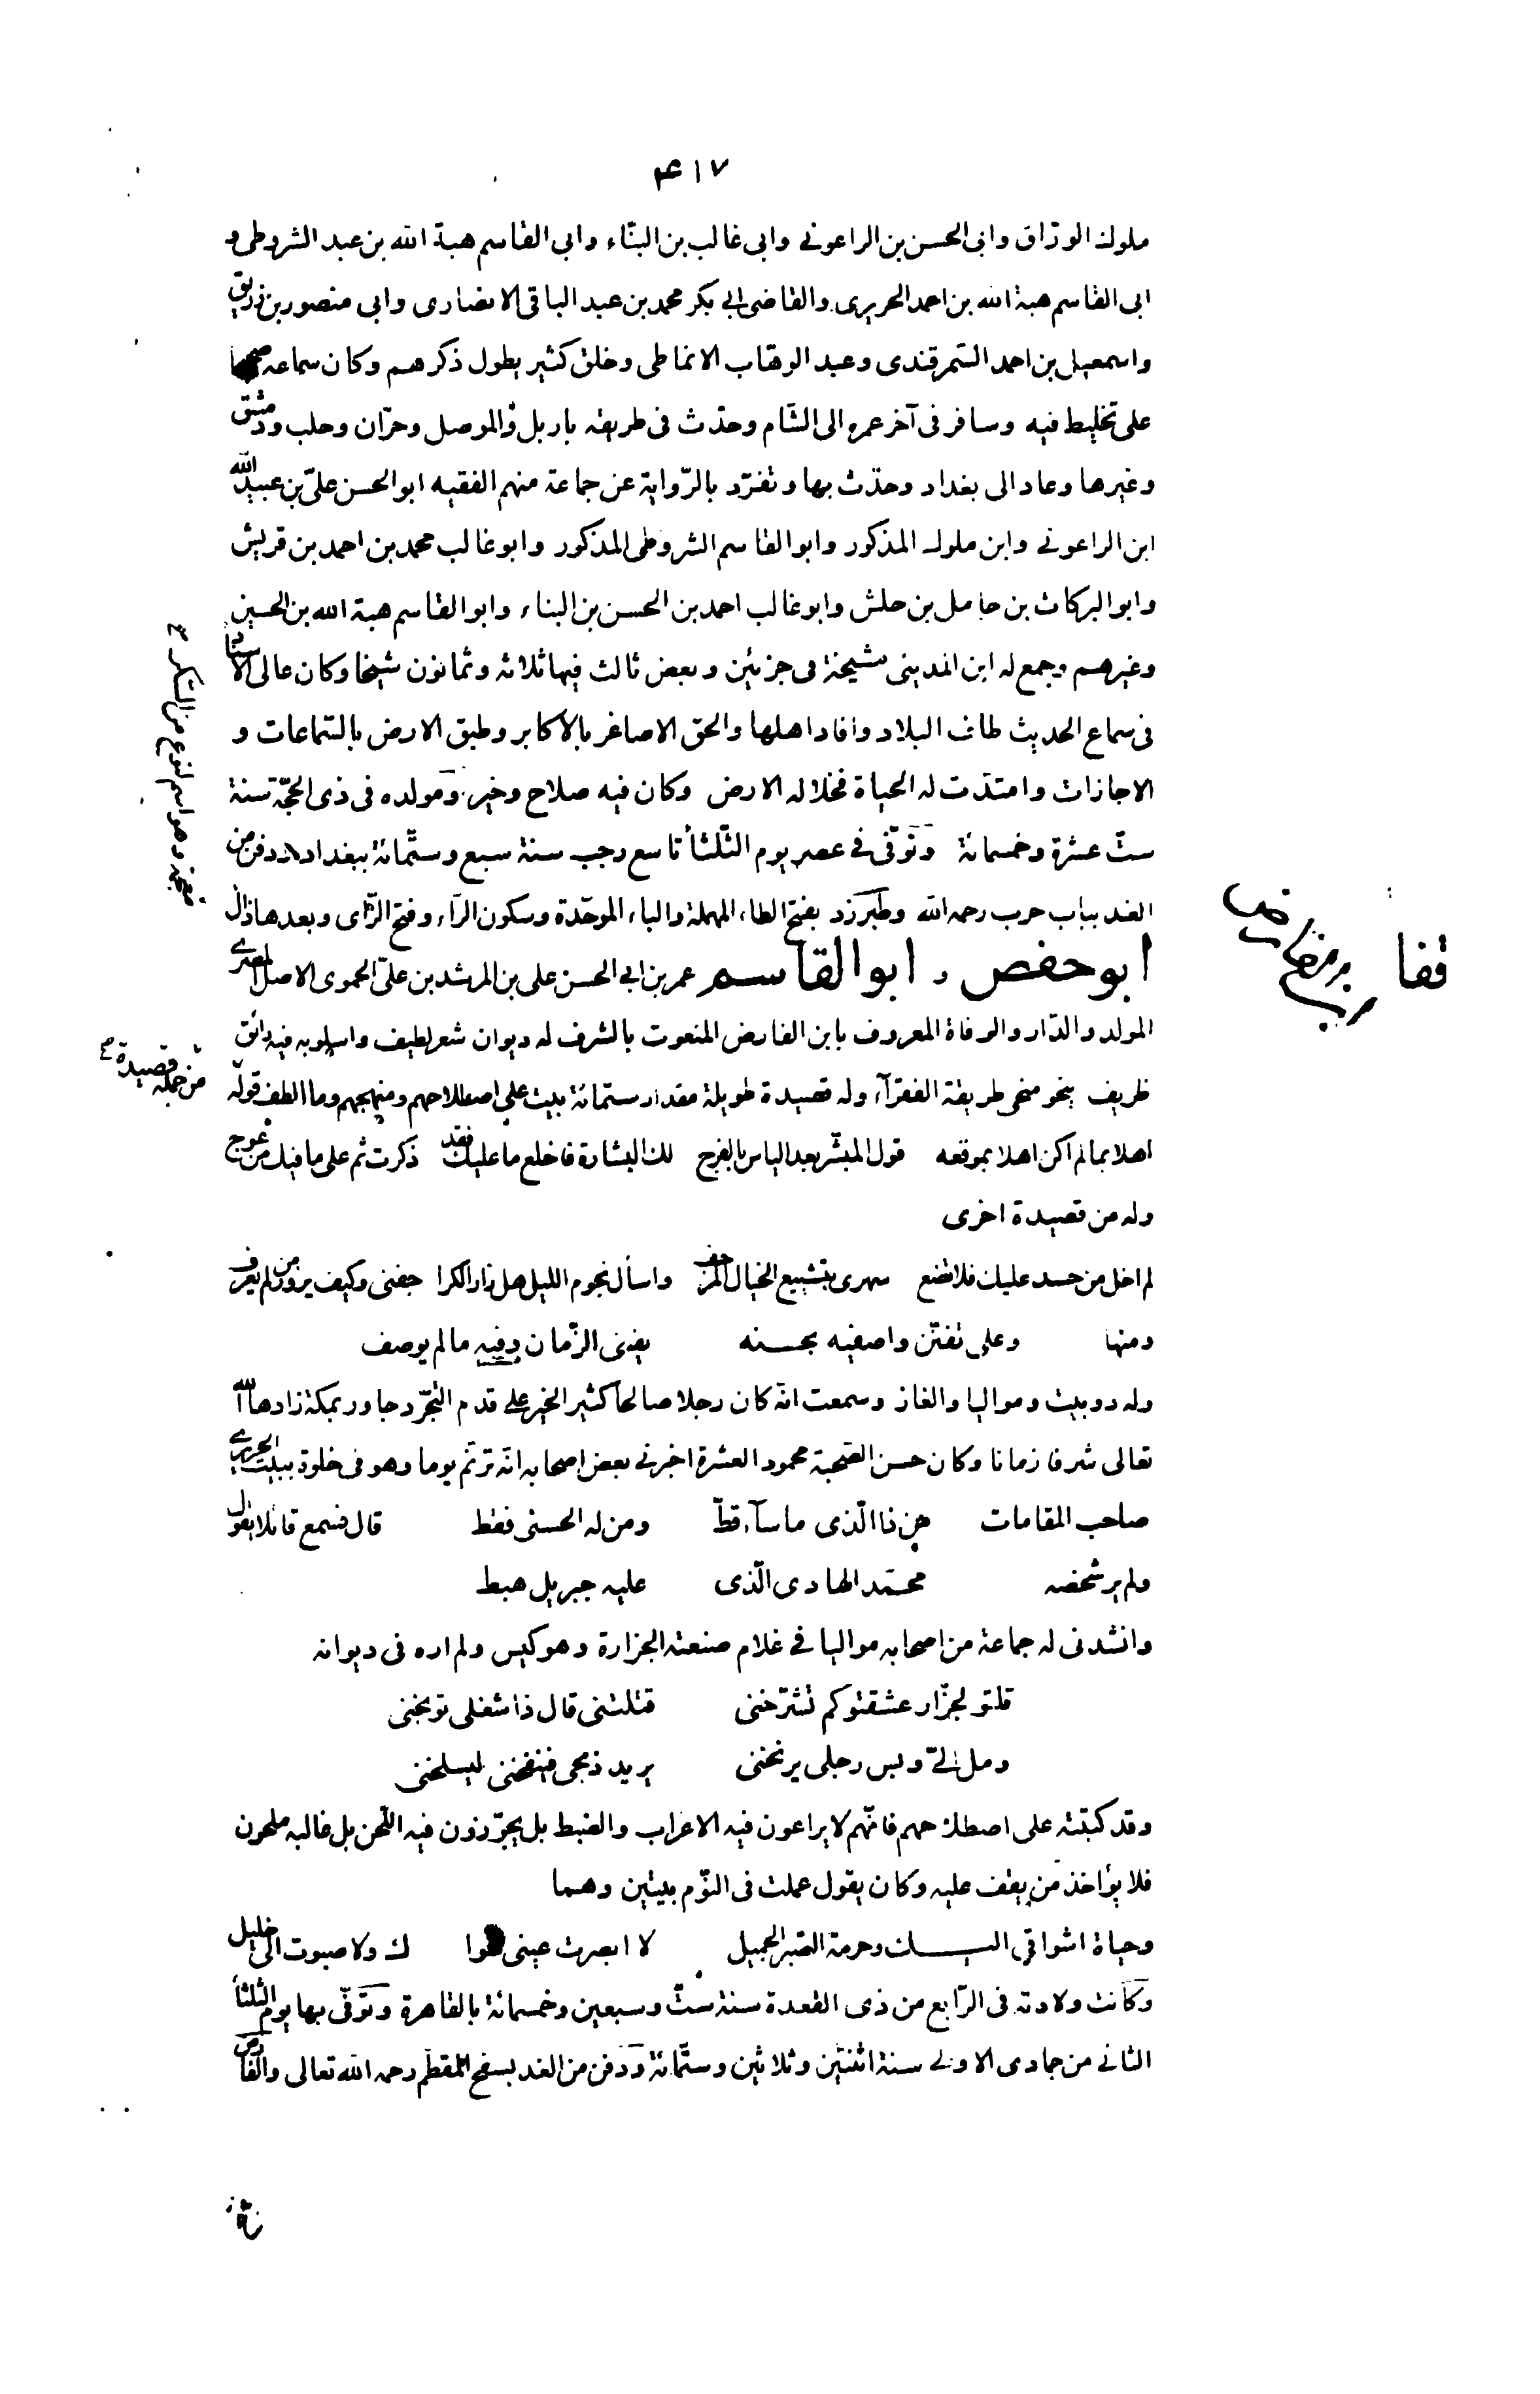 ٤١٧
ملوك الوراق وابى الحسن بن الراعونے وابى غالب بن البنّاء وابى القاسم هبة الله بن عبد الشروطى و
ابى القاسم هبة الله بن احمد الحريرى والقاضى ابى بكر محمد بن عبد الباقى الانصارى وابى منصور بن زريق
واسمعيل بن احمد السّمرقندى وعبد الوهّاب الانماطى وخلق كثير يطول ذكرهم وكان سماعه صحيحا
على تخليط فيه وسافر فى آخر عمره الى الشّام وحدّث فى طريقه باربل والموصل وحرّان وحلب ودمشق
وغيرها وعاد الى بغداد وحدّث بها وتفرّد بالرّواية عن جماعة منهم الفقيه ابو الحسن علىّ بن عبيد الله
ابن الراعونے وابن ملوك المذكور وابو القاسم الشروطى المذكور وابو غالب محمد بن احمد بن قريش
وابو البركات بن حامل بن حلش وابو غالب احمد بن الحسن بن البناء وابو القاسم هبة الله بن الحسين
وغيرهم وجمع له ابن المدينى مشيخة فى جزئين وبعض ثالث فيها ثلاثة وثمانون شيخا وكان عالى الاسناد
فى سماع الحديث طاف البلاد وافاد اهلها والحق الاصاغر بالاكابر وطبق الارض بالسّماعات و
الاجازات وامتدّت له الحياة فخلا له الارض وكان فيه صلاح وخير ومولده فى ذى الحجّة سنة
ستّ عشرة وخمسمائة وتوفّى فى عصر يوم الثّلثأ تاسع رجب سنة سبع وستّمائة ببغداد ودفن من
الغد بباب حرب رحمه الله وطبرزد بفتح الطاء المهملة والباء الموحّدة وسكون الرّاء وفتح الزّاى وبعدها ذال
معجمة وهو اسم لنوع من السّكر
ابو حفص و ابو القاسم عمر بن ابى الحسن على بن المرشد بن علىّ الحموى الاصل المصرے
المولد والدّار والوفاة المعروف بابن الفارض المنعوت بالشرف له ديوان شعر لطيف واسلوبه فيه رائق
ظريف ينحو منحى طريقة الفقرآء وله قصيدة طويلة مقدار ستمائة بيت على اصطلاحهم ومنهجهم وما الطف قوله
من جملة قصيدة
اهلا بما لم اكن اهلا بموقعه قول المبشّر بعد الياس بالفرج لك البشارة فاخلع ما عليك فقد ذكرت ثم على ما فيك من عوج
وله من قصيدة اخرى
لم اخل من حسد عليك فلا تضع سهرى بتشييع الخيال المرجف واسأل نجوم الليل هل زار الكرا جفنى وكيف يزور من لم يعرف
ومنها وعلى تفنّن واصفيه بحسنه يفنى الزّمان وفيه ما لم يوصف
وله دوبيت ومواليا والغاز وسمعت انّه كان رجلا صالحا كثير الخير على قدم التجرّد جاور بمكة زادها الله
تعالى شرفا زمانا وكان حسن الصّحبة محمود العشرة اخبرنے بعض اصحابه انّه ترنّم يوما وهو فى خلوة ببيت الحريرے
صاحب المقامات من ذا الّذى ما سآء قطّ ومن له الحسنى فقط قال فسمع قائلا يقول
ولم ير شخصه محمّد الهادى الّذى عليه جبريل هبط
وانشدنى له جماعة من اصحابه مواليا فى غلام صنعته الجزارة وهو كيس ولم اره فى ديوانه
قلتو لجزّار عشقتو كم تشرّحنى قتلتنى قال ذا شغلى توبخنى
ومل الىّ وبس رجلى يرنخنى يريد ذبحى فينفخنى ليسلخنى
وقد كتبته على اصطلاحهم فانّهم لا يراعون فيه الاعراب والضبط بل يجوّزون فيه اللّحن بل غالبه ملحون
فلا يؤاخذ من يقف عليه وكان يقول عملت فى النوّم بيتين وهما
وحياة اشواقى اليك وحرمة الصّبر الجميل لا ابصرت عينى سوا ك ولا صبوت الى خليل
وكانت ولادته فى الرّابع من ذى القعدة سنة ستّ وسبعين وخمسمائة بالقاهرة وتوفّى بها يوم الثلثأ
الثانے من جمادى الاولے سنة اثنتين وثلاثين وستّمائة ودفن من الغد بسفح المقطّم رحمه الله تعالى والفارض